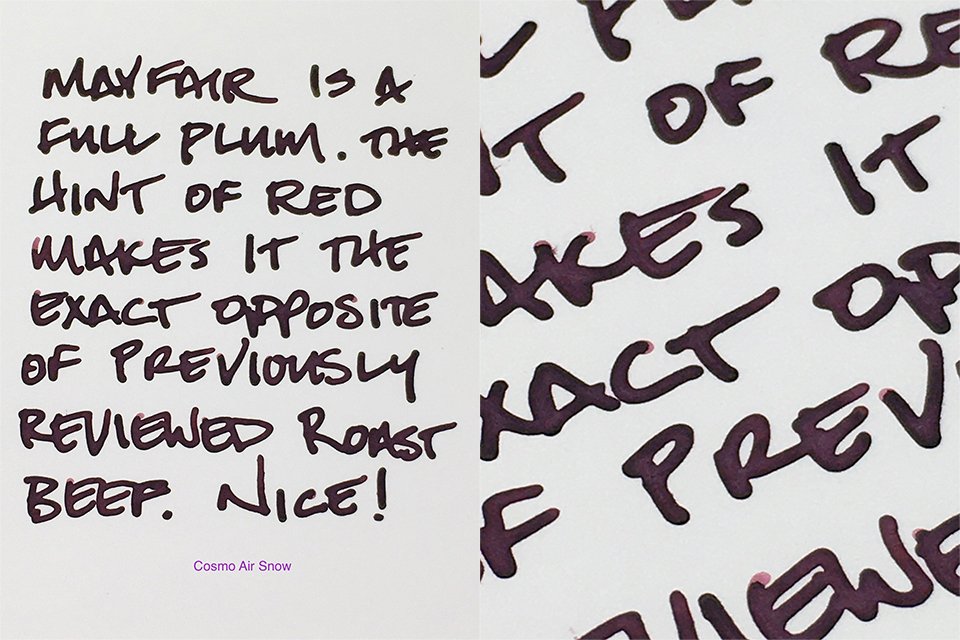 MAYFAIR IS A
FULL PLUM. THE
HINT OF RED
MAKES IT THE
EXACT OPPOSITE
OF PREVIOUSLY
REVIEWED ROAST
BEEF. NICE!
Cosmo Air Snow
OF RE
T IT
AKES
XACT OP
F PREVI
VIEWE